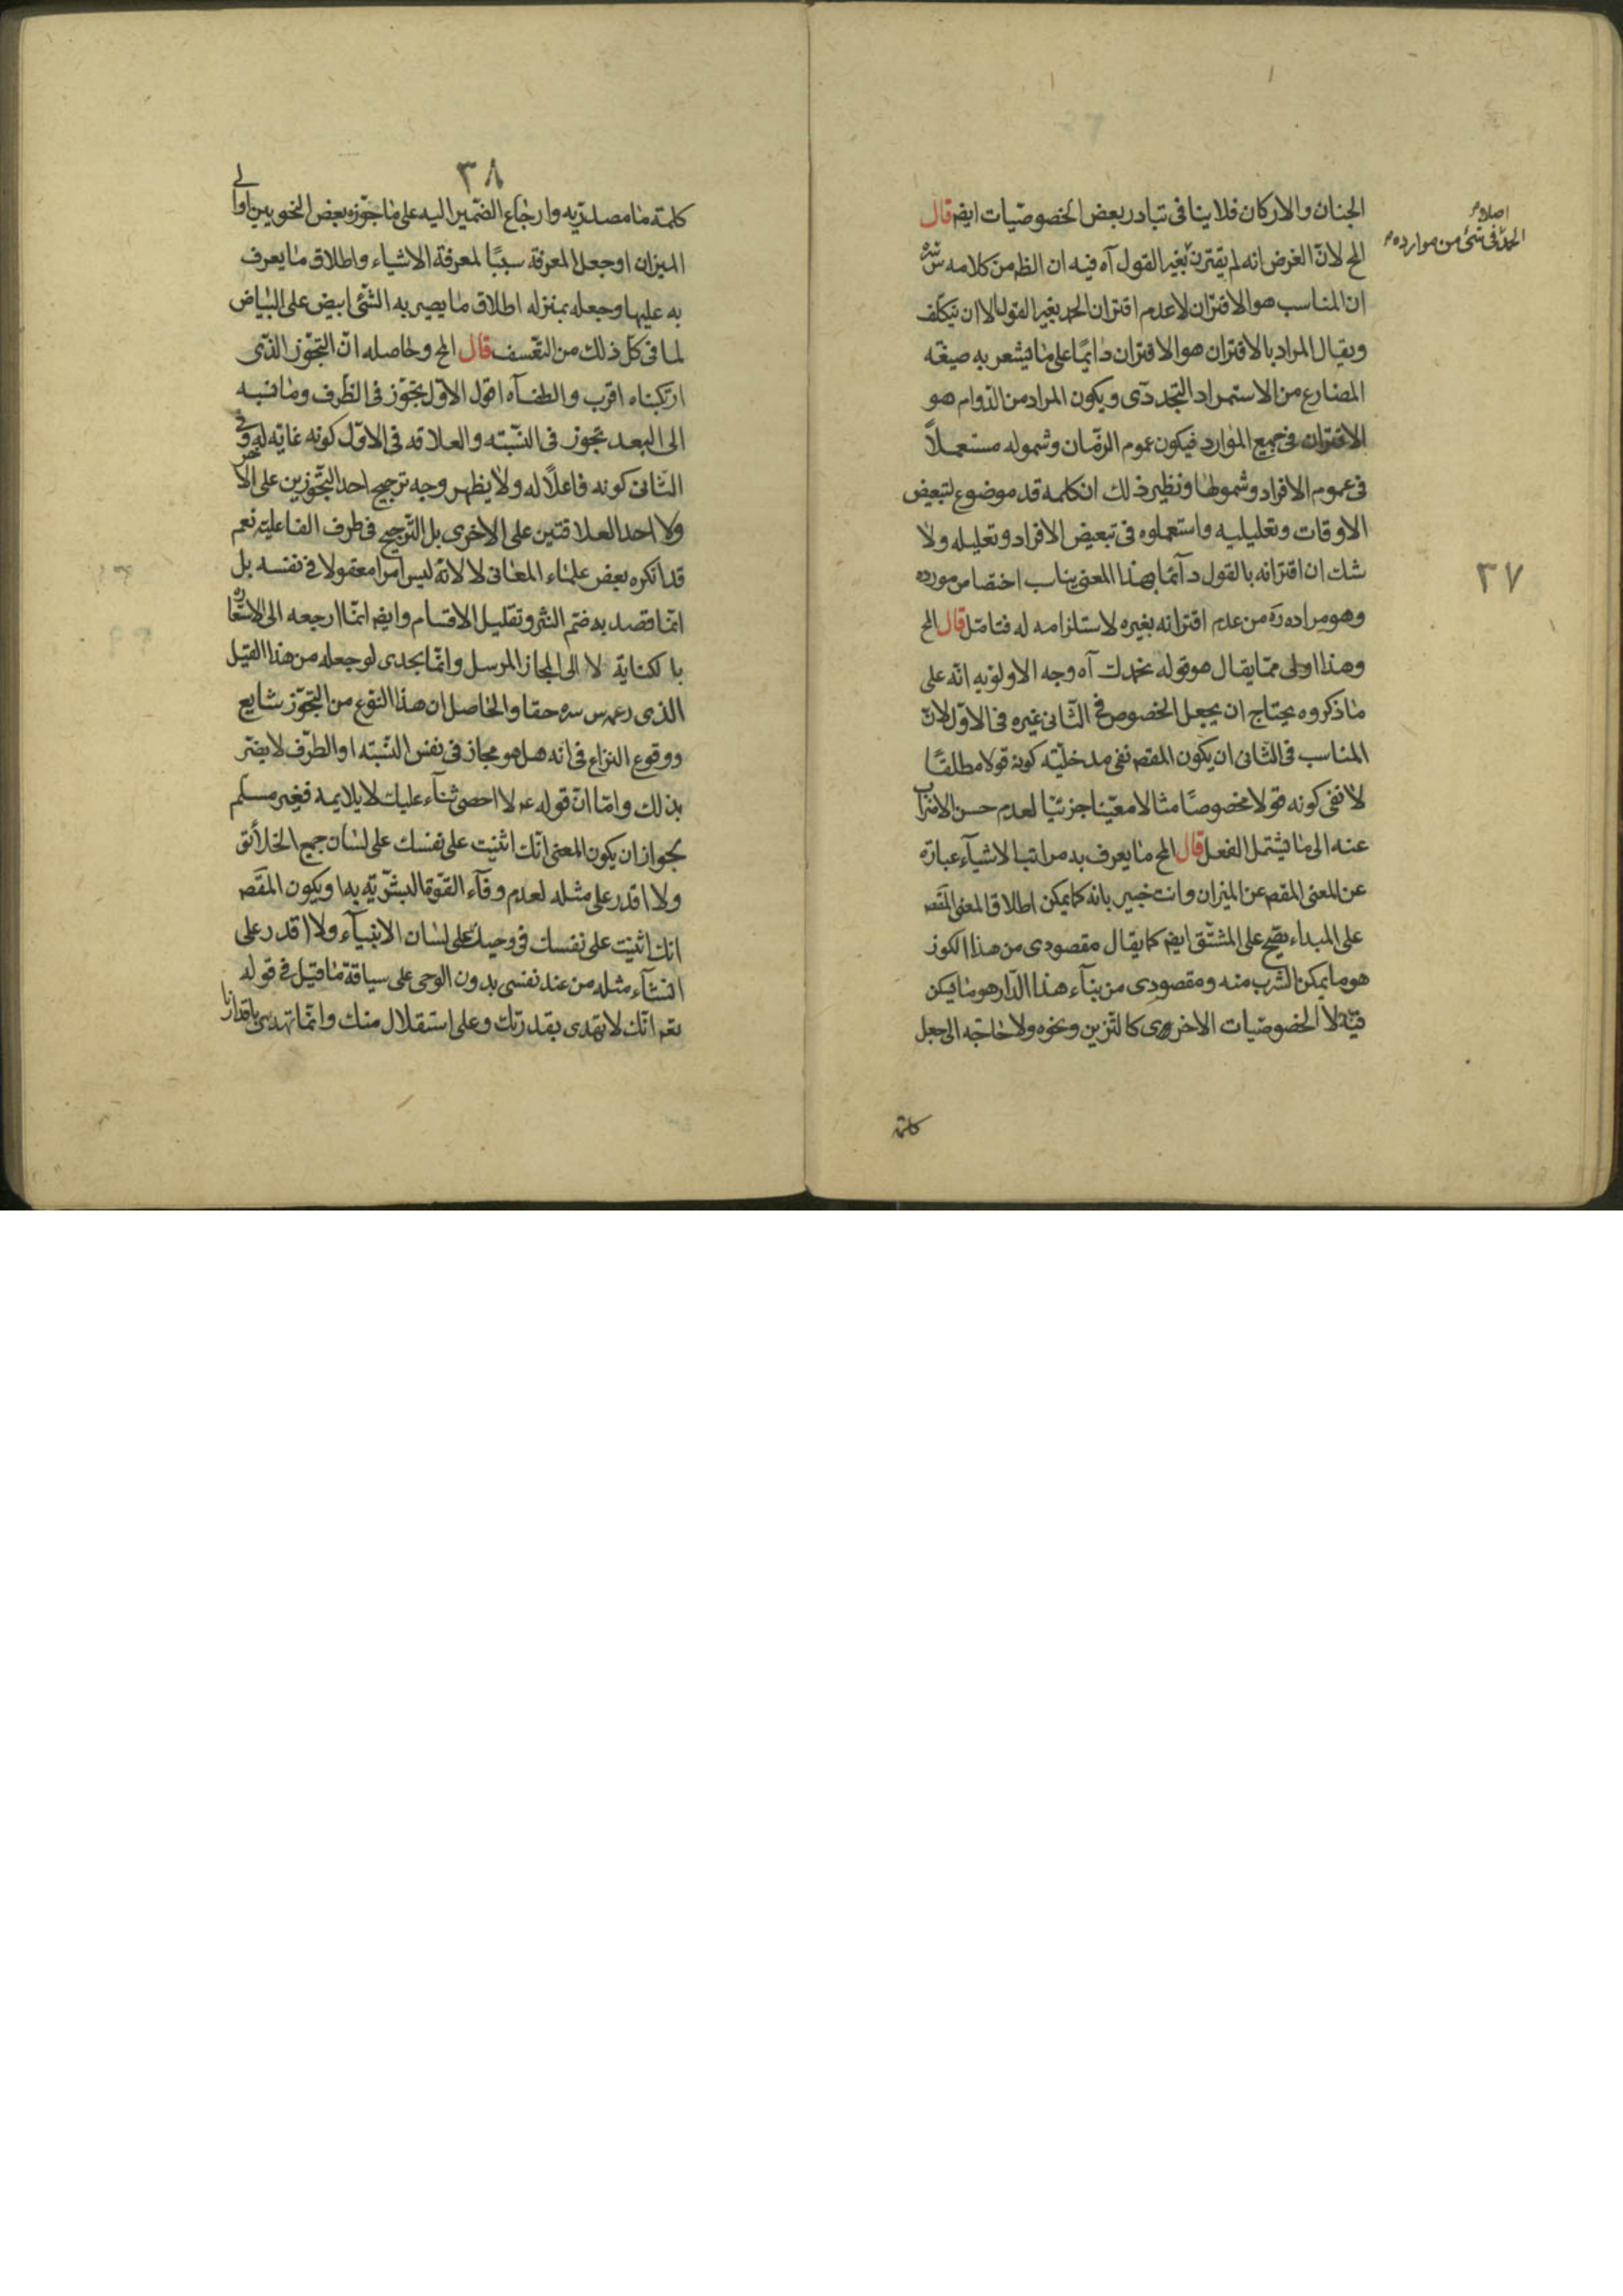 الجنان والاركان فلا ينافى تبادر بعض الخصوصيات ايضا قال
اصلا م
الحمد فى شئ من موارده م
الخ لان الغرض انه لم يقترن بغير القول آه فيه ان الظ من كلامه س سره
ان المناسب هو الاقتران لا عدم اقتران الحمد بغير القول الا ان يتكلف
ويقال المراد بالاقتران هو الاقتران دايما على ما يشعر به صيغه
المضارع من الاستمراد التجددى ويكون المراد من الدوام هو
الاقتران فى جميع الموارد فيكون عموم الزمان وشموله مستعملاً
فى عموم الافراد وشمولها ونظير ذلك ان كلمه قد موضوع لتبعيض
الاوقات وتعليليه واستعملوه فى تبعيض الافراد وتعليله ولا
شك ان اقترانه بالقول دآئما بهذا المعنى يناسب اختصاص مورده
٣٧
وهو مراده ره من عدم اقترانه بغيره لاستلزامه له فتامل قال الخ
وهذا اولى مما يقال هو قوله نحمدك آه وجه الاولويه انه على
ما ذكروه يحتاج ان يجعل الخصوص فى الثانى غيره فى الاول لان
المناسب فى الثانى ان يكون المقصه نفى مدخليته كونه قولا مطلقاً
لا نفى كونه قولا مخصوصاً مثالا معيّنا جزئيّا لعدم حسن الاضراب
عنه الى ما يشتمل الفعل قال الخ ما يعرف به مراتب الاشيآء عبارة
عن المعنى المقصه عن الميزان وانت خبير بانه كما يمكن اطلاق المعنى المقصه
على المبداء يصح على المشتق ايضا كما يقال مقصودى من هذا الكوز
هو ما يمكن الشرب منه ومقصودى من بنآء هذا الدار هو ما يسكن
فيه لا الخصوصيات الاخرى كالتزين ونحوه ولا حاجه الى جعل
كلمة
٣٨
كلمة ما مصدريه وارجاع الضمير اليه على ما جوزه بعض النحويين او الى
الميزان او جعل المعرفة سببًا لمعرفة الاشياء واطلاق ما يعرف
به عليها وجعله بمنزله اطلاق ما يصير به الشئ ابيض على البياض
لما فى كل ذلك من التعسف قال الخ وحاصله ان التجوز الذى
ارتكبناه اقرب والطف آه اقول الاول تجوز فى الظرف وما نسبه
الى البعد تجوز فى النسبته والعلاقه فى الاول كونه غاية له وفى
الثانى كونه فاعلاً له ولا يظهر وجه ترجيح احد التجوزين على الاخر
ولا احد العلاقتين على الاخرى بل الترجيح فى طرف الفاعلية نعم
قد انكره بعض علماء المعانى لا لانه ليس امرا معقولا فى نفسه بل
انما قصد به ضم النشر وتقليل الاقسام وايضا انما ارجعه الى الاستعاره
بالكناية لا الى المجاز المرسل وانما يجدى لو جعله من هذا القبيل
الذى زعمه س سره حقا والحاصل ان هذا النوع من التجوز شايع
ووقوع النزاع فى انه هل هو مجاز فى نفس النسبته او الطرف لا يضر
بذلك واما ان قوله عه لا احصى ثنآء عليك لا يلايمه فغير مسلم
لجواز ان يكون المعنى انك اثنيت على نفسك على لسان جميع الخلائق
ولا اقدر على مثله لعدم وفآء القوة البشرية بها ويكون المقصه
انك اثنيت على نفسك فى وحيك على لسان الانبيآء ولا اقدر على
انشآء مثله من عند نفسى بدون الوحى على سياقة ما قيل فى قوله
تعه انك لا تهدى بقدرتك وعلى استقلال منك وانما تهدى باقدارنا